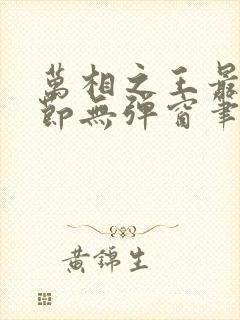 萬相之王最
節無彈窗筆
黃錦生